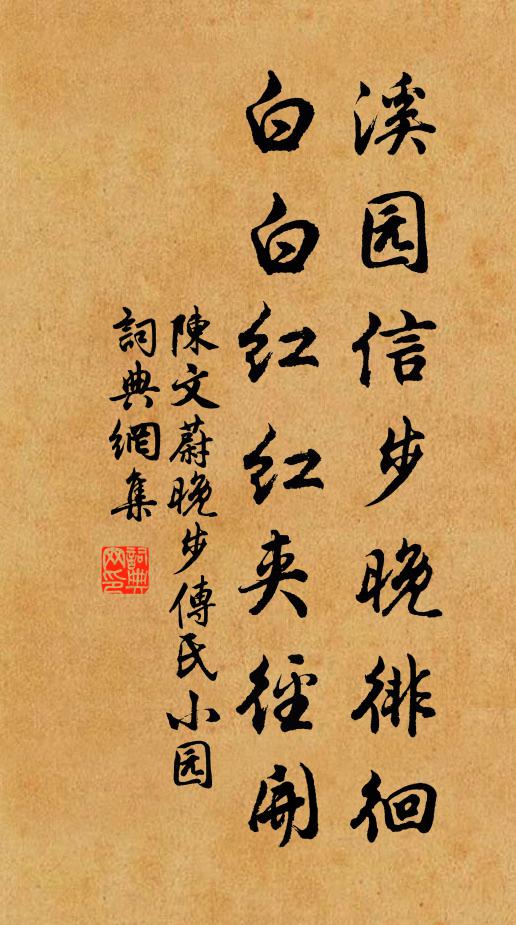 溪园信步晚徘徊
白白红红夹径開
陳文蔚晚步傅氏小园
詞典網集
詞典网印